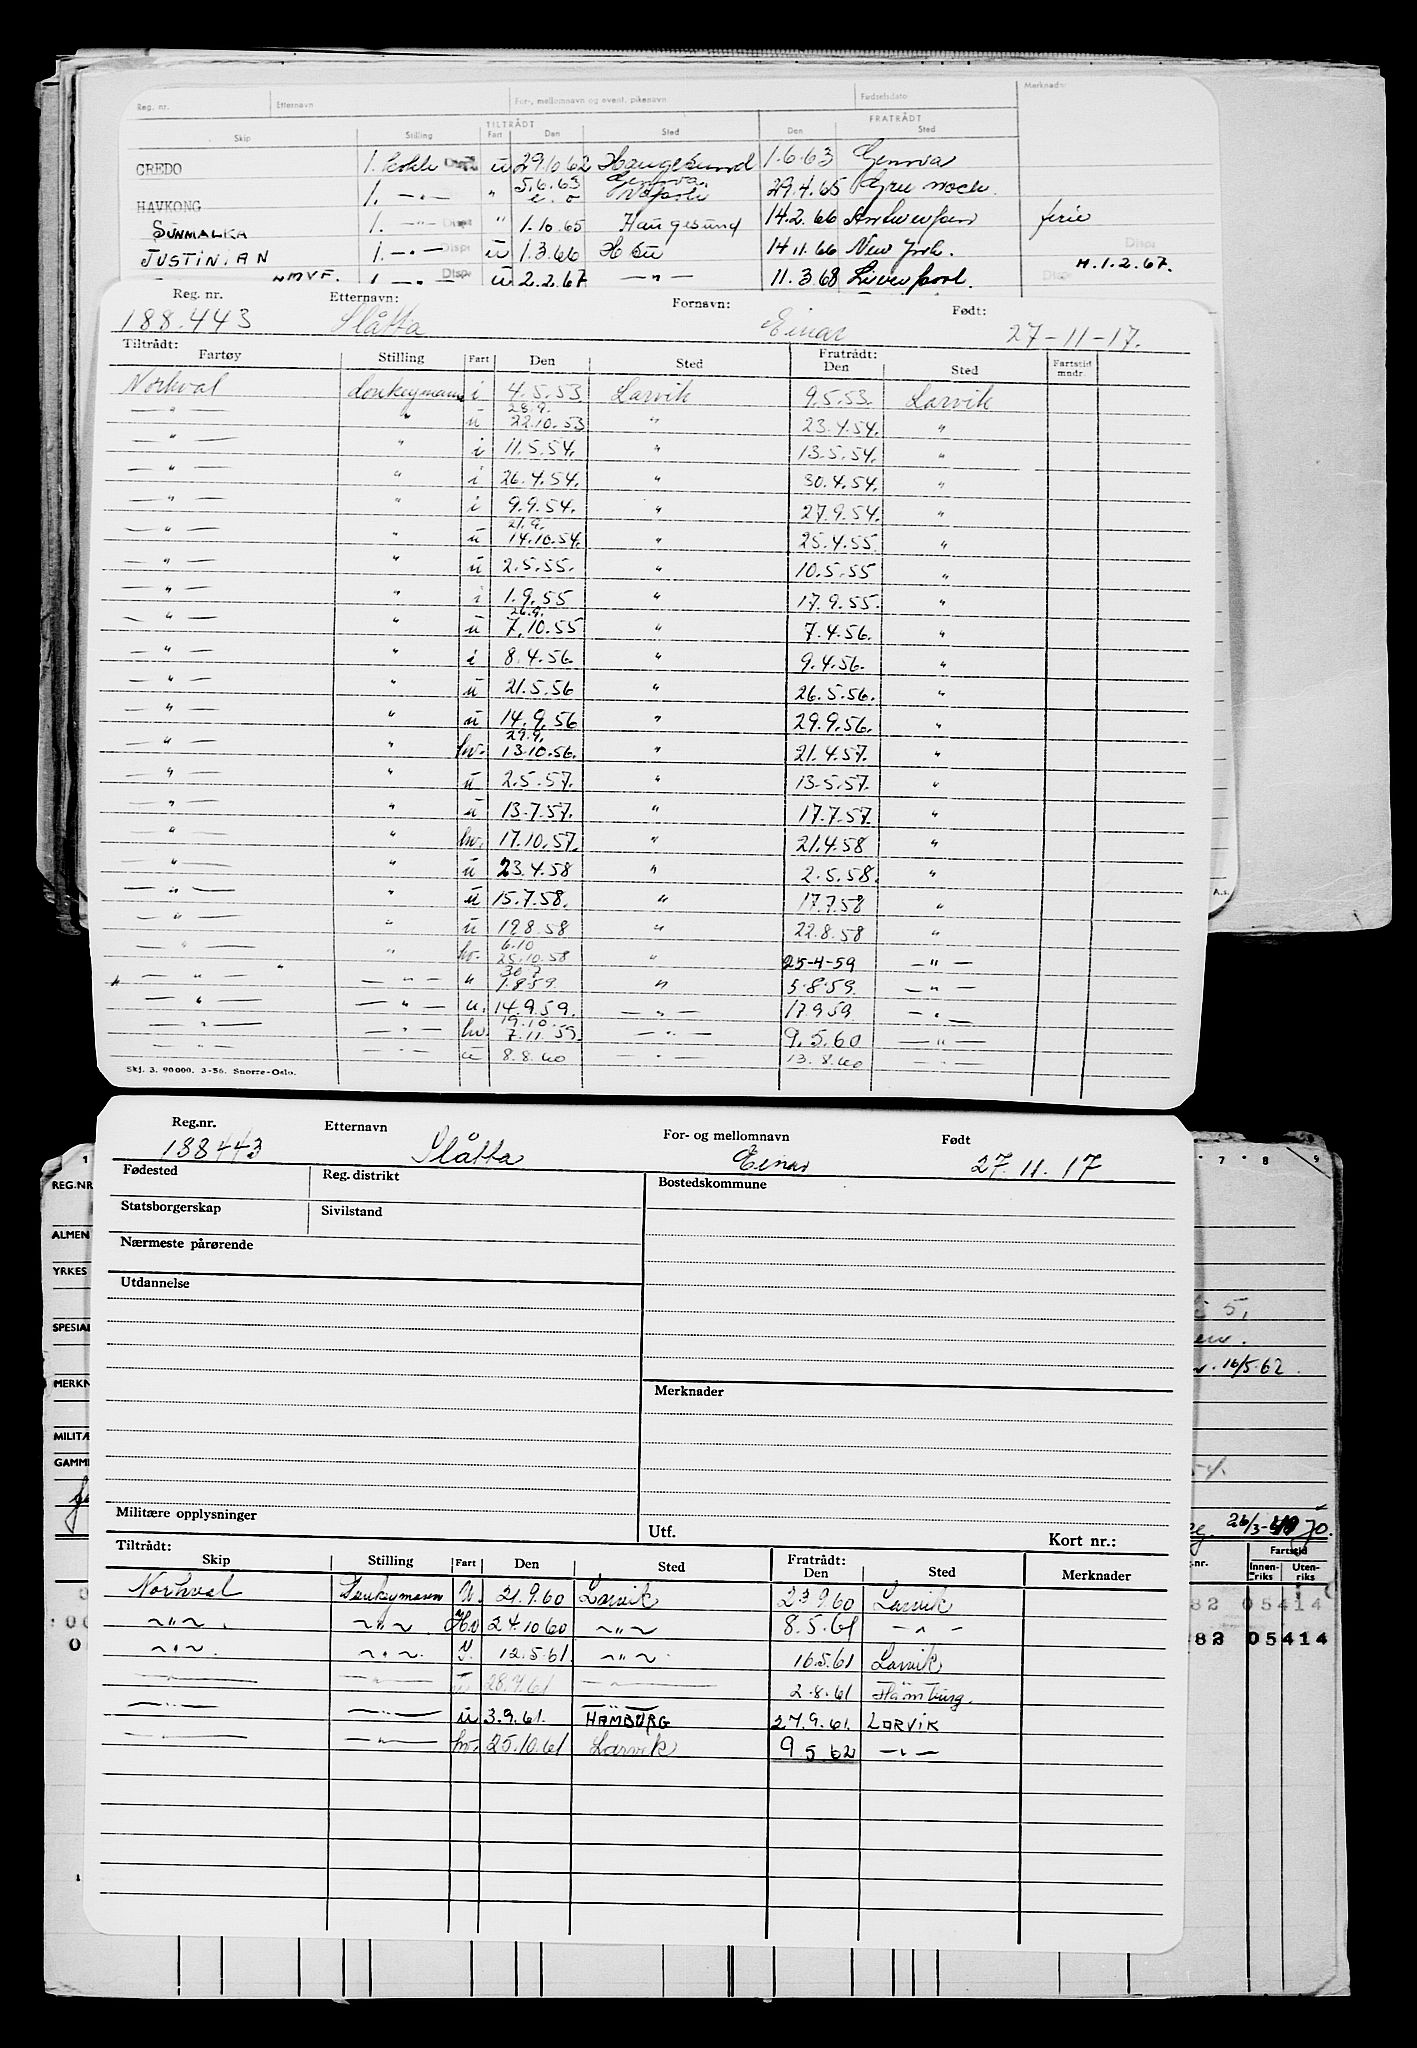 Reg. nr. Etternavn For-, mellomnavn og event. pikenavn Fødselsdato Merknader
TILTRÅDT FRATRÅDT
Skip Stilling Fart Den Sted Den Sted
CREDO 1. kokk u 29.10.62 Haugesund 1.6.63 Genova
HAVKONG 1. — " — " 5.6.63 Genova 29.4.65
SUNMALKA 1. — " — " 1.10.65 Haugesund 14.2.66 Antwerpen ferie
JUSTINIAN 1. — " — u 1.3.66 14.11.66 New York.
1. — " — u 2.2.67 — " — 11.3.68 Liverpool. H.1.2.67.
Reg. nr. Etternavn: Fornavn: Født:
188.443 Slåtta Einar 27-11-17.
Tiltrådt: Fratrådt:
Fartøy Stilling Fart Den Sted Den Sted Fartstid mndr
Norhval donkeymann i 4.5.53 Larvik 9.5.53. Larvik
— " — " u 28.9. 22.10.53 " 23.4.54. "
— " — " i 11.5.54. " 13.5.54. "
— " — " i 26.4.54. " 30.4.54. "
— " — " i 9.9.54. " 27.9.54. "
— " — " u 21.9. 14.10.54. " 25.4.55. "
— " — " u 2.5.55. " 10.5.55 "
— " — " i 1.9.55 " 17.9.55. "
— " — " u 26.9. 7.10.55 " 7.4.56. "
— " — " i 8.4.56. " 9.4.56. "
— " — " u 21.5.56 " 26.5.56. "
— " — " u 14.9.56 " 29.9.56. "
— " — " hv. 29.9. 13.10.56. " 21.4.57. "
— " — " u 2.5.57. " 13.5.57. "
— " — " u 13.7.57. " 17.7.57. "
— " — " hv. 17.10.57. " 21.4.58 "
— " — " u 23.4.58 " 2.5.58. "
— " — " u 15.7.58. " 17.7.58 "
— " — " u 19.8.58 " 22.8.58 "
— " — " hv. 6.10 25.10.58 " 25-4-59 — " —
" — " — " — " — " 30.7 1.8.59. " 5.8.59. — " —
— " — — " — u. 14.9.59. — " — 17.9.59. — " —
— " — — " — hv. 19.10. 7.11.59. — " — 9.5.60 — " —
— " — — " — u 8.8.60 — " — 13.8.60 — " —
Skj. 3. 90000. 3-56. Snorre-Oslo.
A.s.
Reg.nr. Etternavn For- og mellomnavn Født
188443 Slåtta Einar 27.11.17
Fødested Reg. distrikt Bostedskommune
Statsborgerskap Sivilstand
Nærmeste pårørende
Utdannelse
Merknader
Militære opplysninger Utf. Kort nr.:
Tiltrådt: Fratrådt:
Skip Stilling Fart Den Sted Den Sted Merknader
Norhval Donkeymann U. 21.9.60 Larvik 23.9.60 Larvik
~ " ~ . ~ " ~ . Hv 24.10.60 ~ " ~ 8.5.61 — " —
~ " ~ . ~ " ~ . 12.5.61 ~ " ~ . 16.5.61 Larvik
— " — — " — u — " — 2.8.61 Hamburg.
— " — — " — u 3.9.61. HAMBURG 27.9.61. LARVIK
— " — — " — hv. 25.10.61 Larvik 9.5.62 — " —
1
REG.NR
ALMEN
YRKES
SPESIAL
MERKN
MILITÆ
GAMM
7 8 9
5,
16/5.62.
54.
26/3-
Fartstid
nr. Innen-riks Uten-riks
82 05414
882 05414